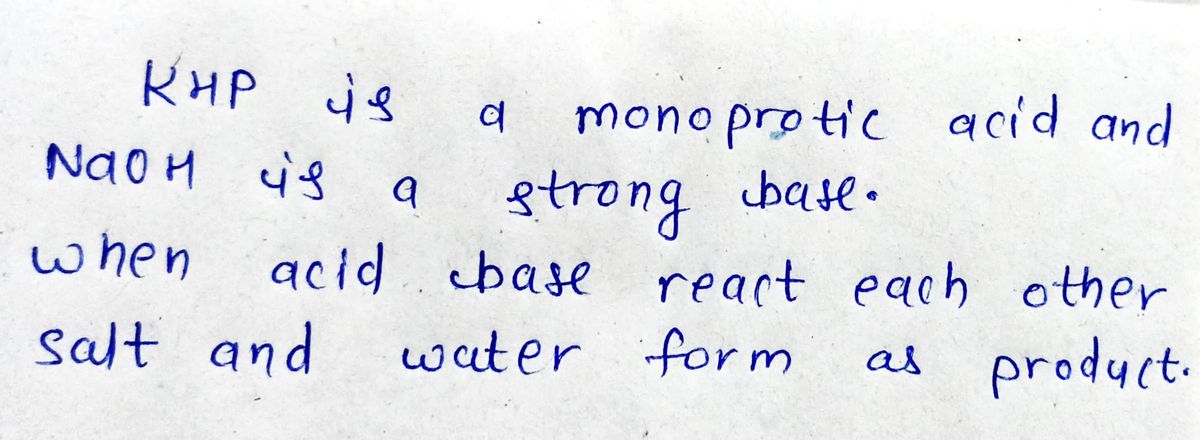 KHP is a monoprotic acid and
NaOH is a strong base.
when acid base react each other
salt and water form as product.